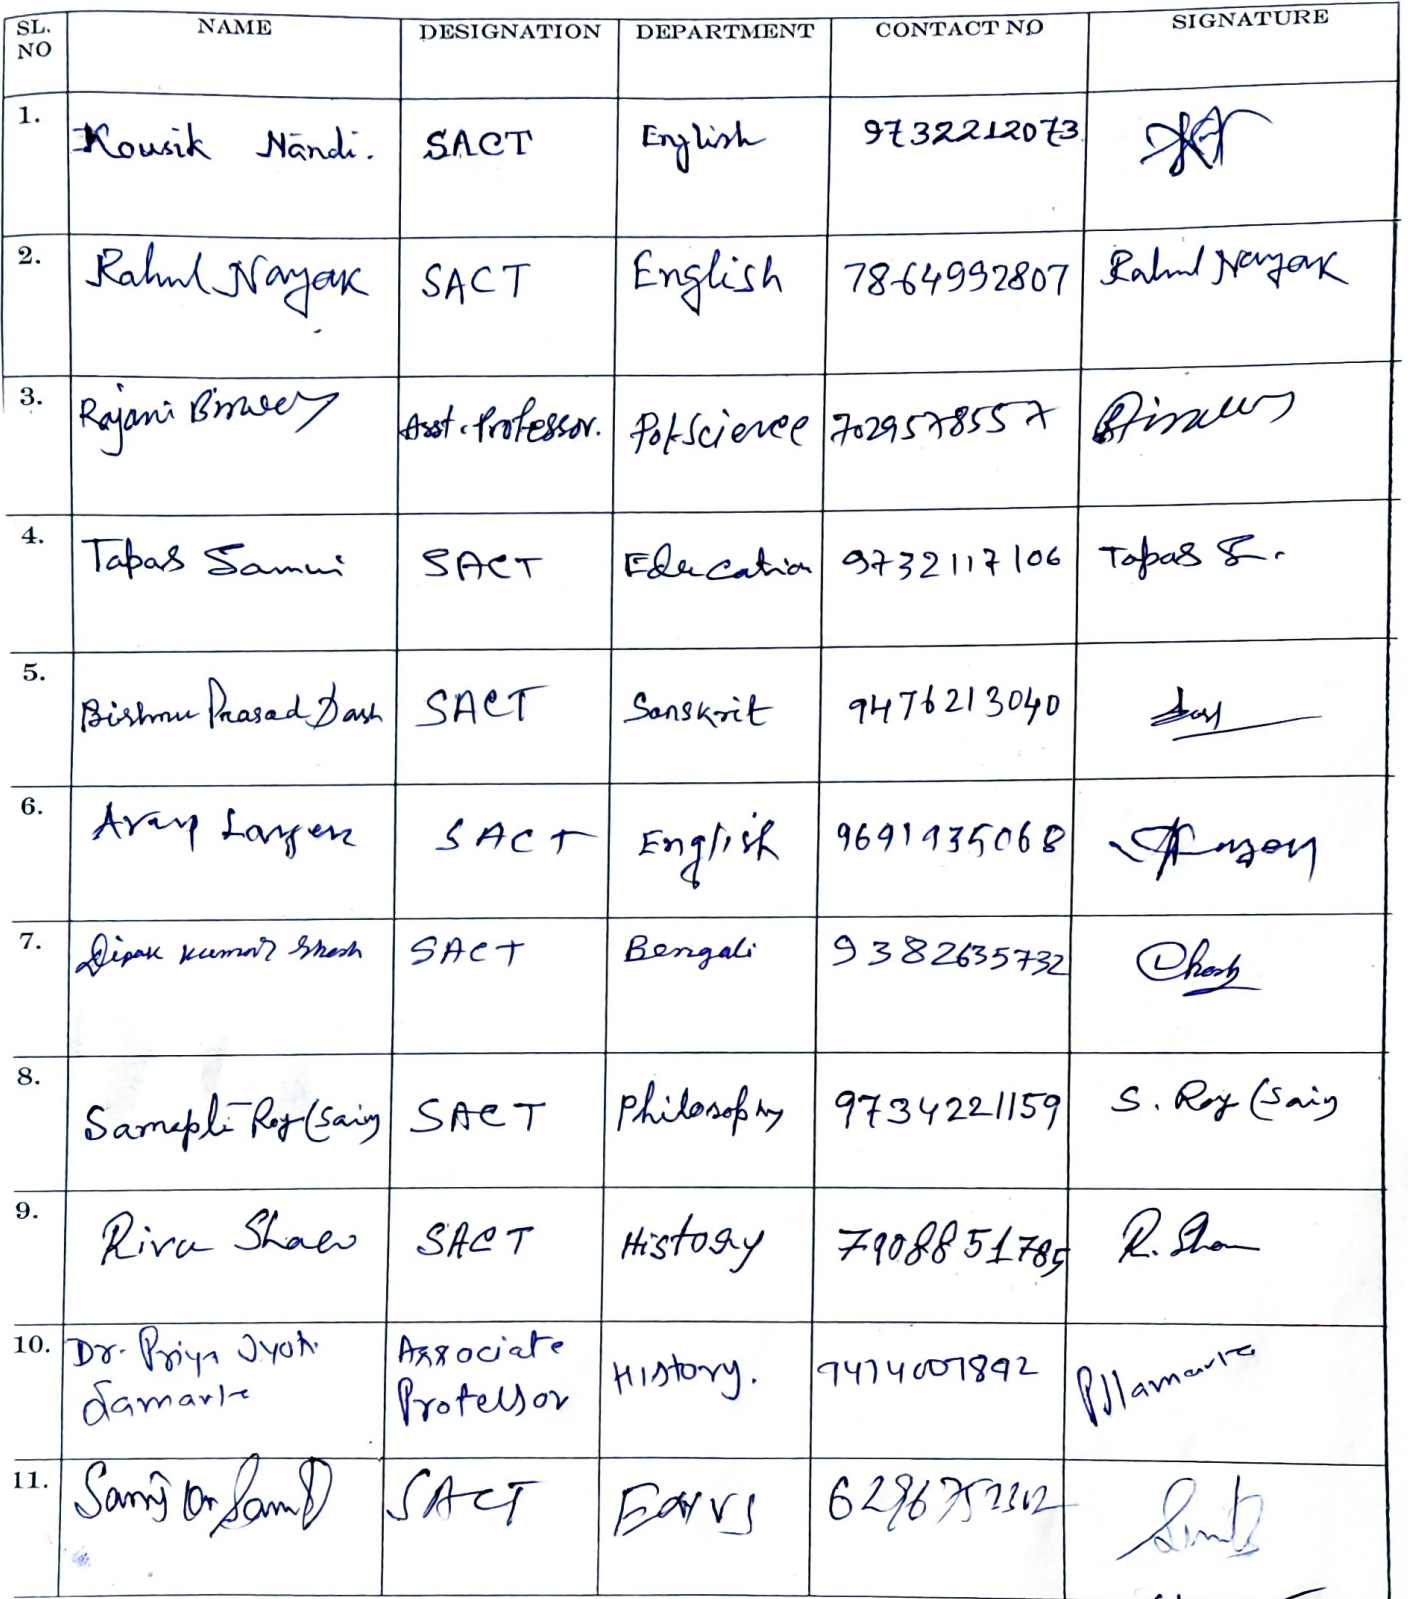 SL. NO NAME DESIGNATION DEPARTMENT CONTACT NO SIGNATURE
1. Kousik Nandi. SACT English 9732212073
2. Rahul Nayak SACT English 7864992807 Rahul Nayak
3. Rajani Asst. Professor. Pol Science 7029578557
4. Tapas SACT Education 9732117106 Tapas S.
5. Bishnu Prasad Dash SACT Sanskrit 9476213040 Dash
6. SACT English 9691935068
7. Dipak Kumar Ghosh SACT Bengali 9382635732 Ghosh
8. Roy (Sain) SACT Philosophy 9734221159 S. Roy (Sain)
9. Riva Shaw SACT History 7908851785 R. Shaw
10. Dr. Priya Jyoti Associate History.
Samanta Professor
11. SACT